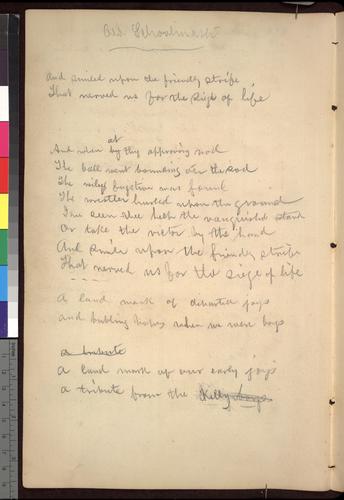 Old Schoolmaster
And smiled upon the friendly strife
That nerved us for the siege of life
at
And when by thy approving nod
The ball went bounding oer the sod
The
The wrestler hurled upon the ground
I've seen thee help the vanquished stand
Or take the victor by the hand
And smile upon the friendly strife
That nerved us for the siege of life
A land mark of departed joys
and bubling hopes when we were boys
a tribute
a land mark of our early joys
a tribute from the Kelly boys